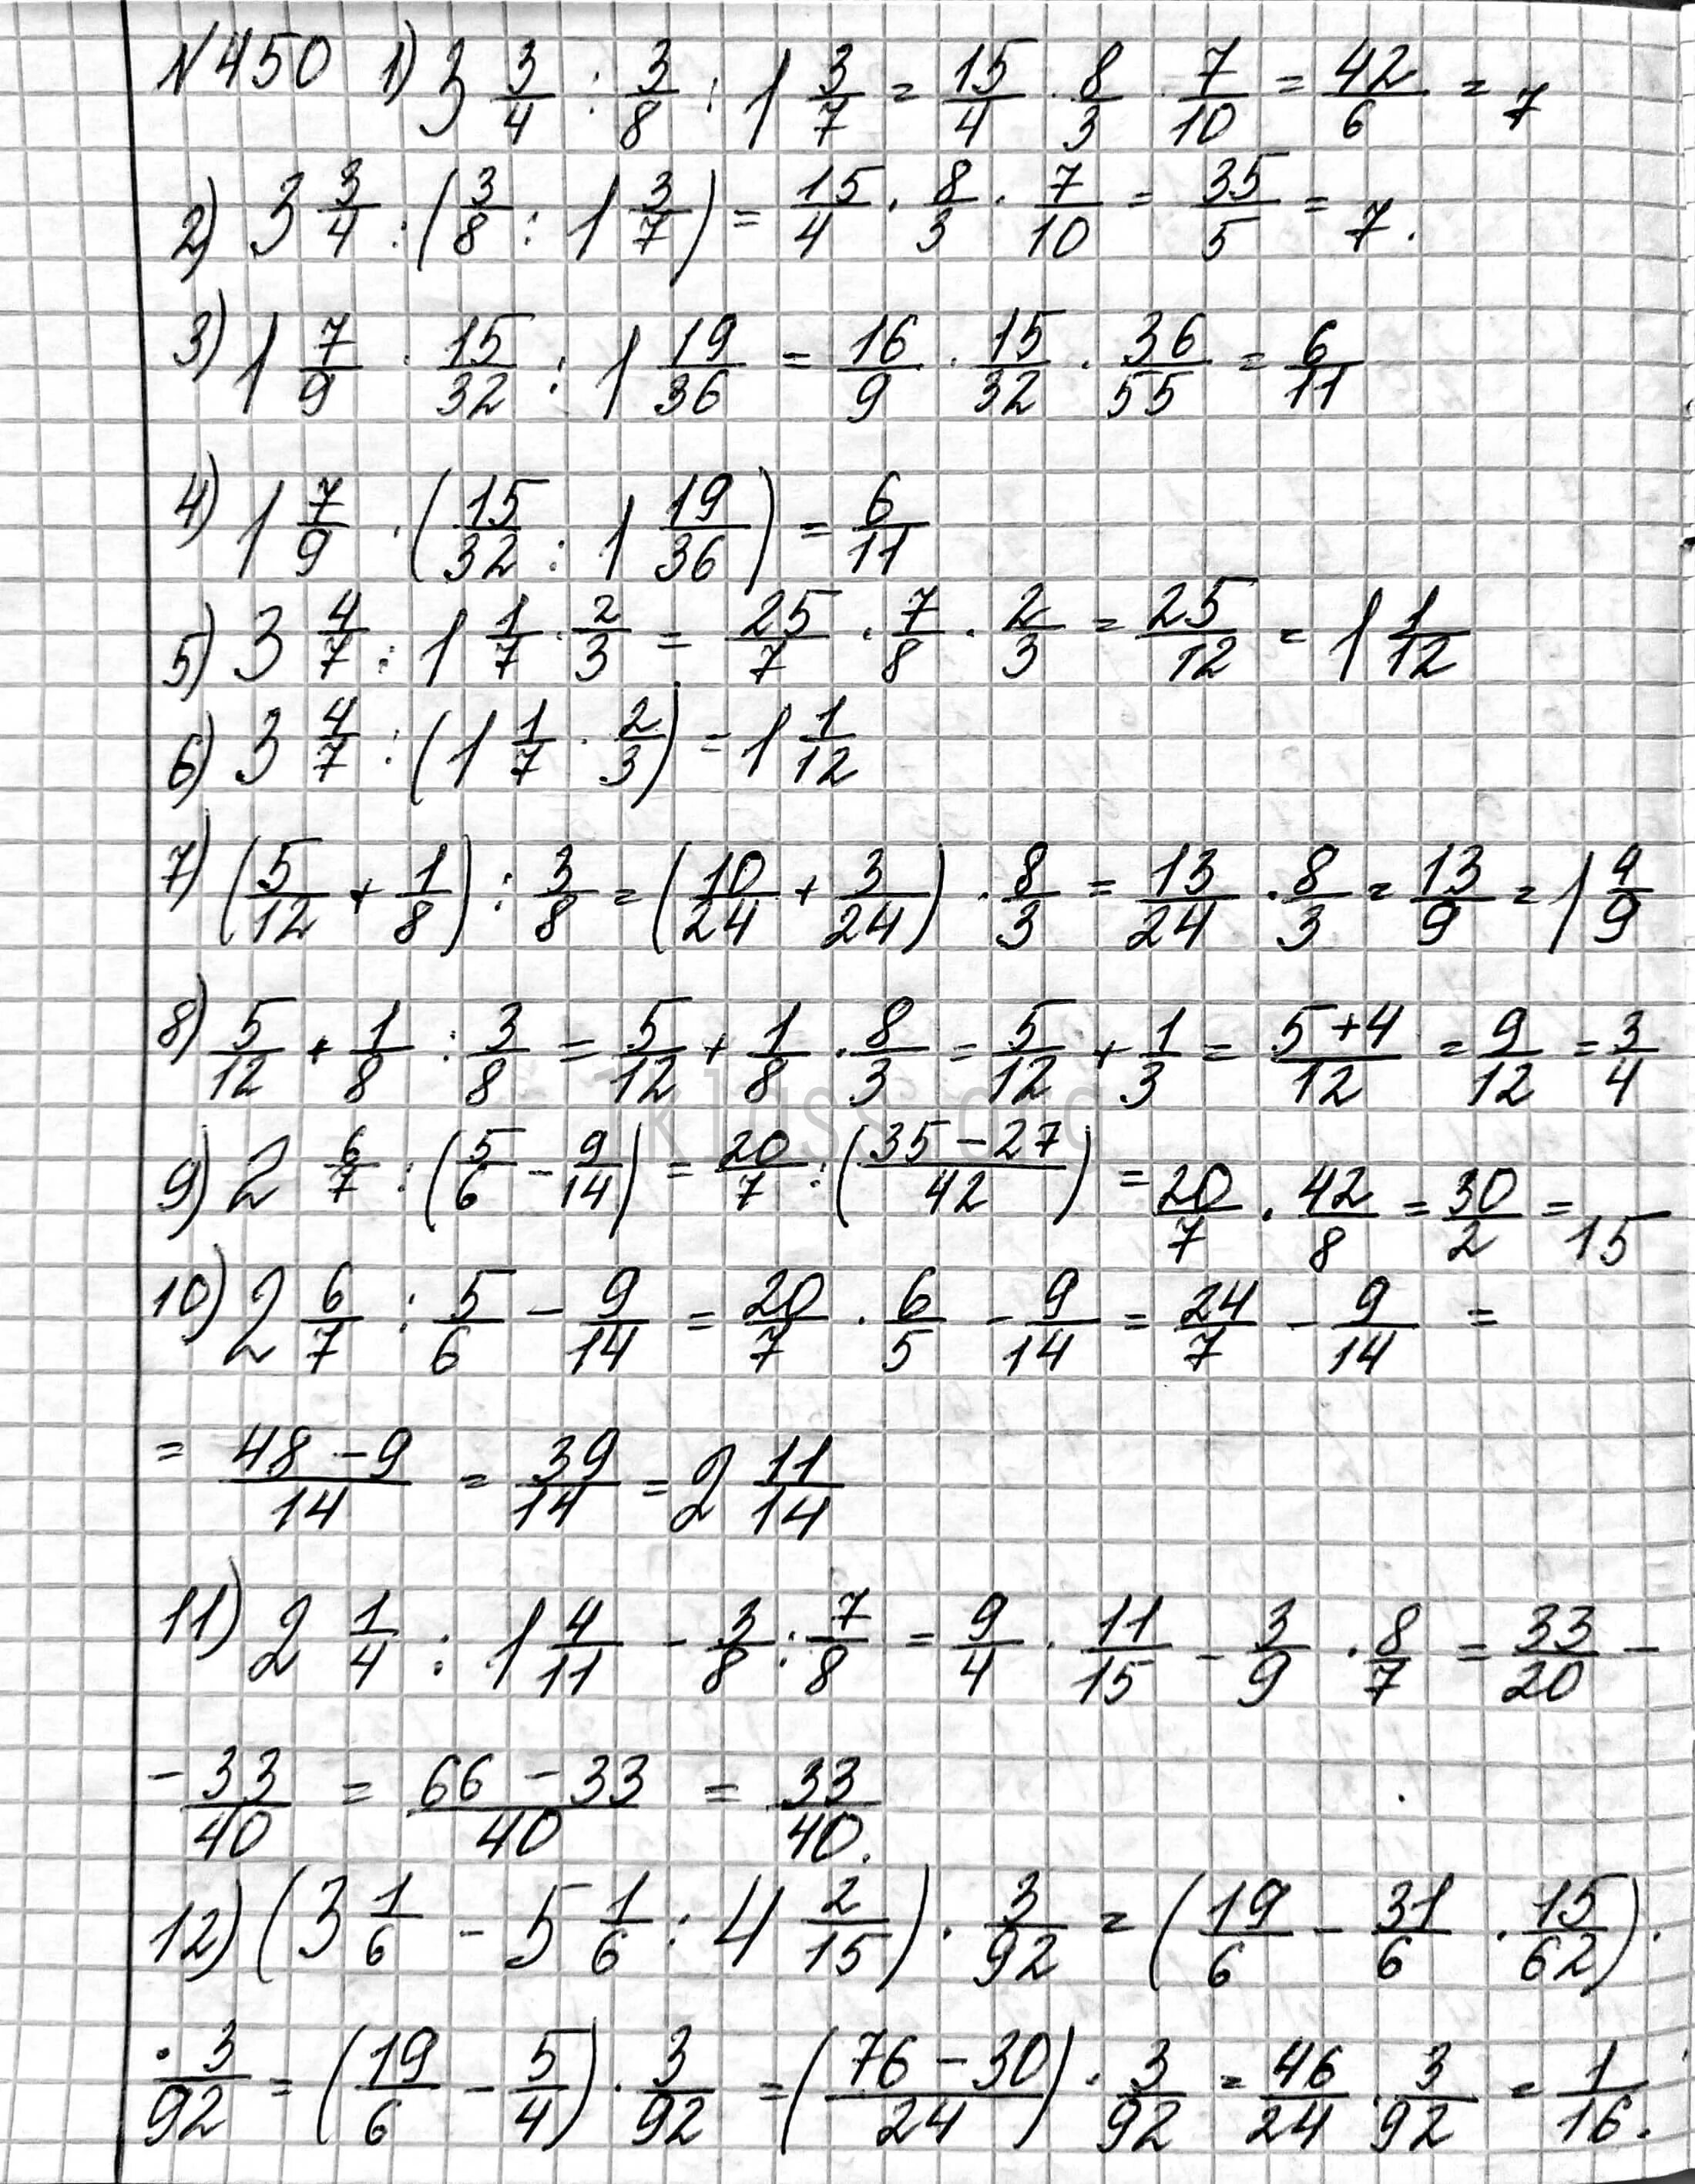 №450 1) 3 3/4 : 3/8 : 1 3/7 = 15/4 · 8/3 · 7/10 = 42/6 = 7
2) 3 3/4 : (3/8 : 1 3/7) = 15/4 · 8/3 · 7/10 = 35/5 = 7.
3) 1 7/9 · 15/32 : 1 19/36 = 16/9 · 15/32 · 36/55 = 6/11
4) 1 7/9 · (15/32 : 1 19/36) = 6/11
5) 3 4/7 : 1 1/7 · 2/3 = 25/7 · 7/8 · 2/3 = 25/12 = 1 1/12
6) 3 4/7 : (1 1/7 · 2/3) = 1 1/12
7) (5/12 + 1/8) : 3/8 = (10/24 + 3/24) · 8/3 = 13/24 · 8/3 = 13/9 = 1 4/9
8) 5/12 + 1/8 : 3/8 = 5/12 + 1/8 · 8/3 = 5/12 + 1/3 = 5+4/12 = 9/12 = 3/4
9) 2 6/7 : (5/6 - 9/14) = 20/7 : (35-27/42) = 20/7 · 42/8 = 30/2 = 15
10) 2 6/7 : 5/6 - 9/14 = 20/7 · 6/5 - 9/14 = 24/7 - 9/14 =
= 48-9/14 = 39/14 = 2 11/14
11) 2 1/4 : 1 4/11 - 3/8 : 7/8 = 9/4 · 11/15 - 3/9 · 8/7 = 33/20 -
- 33/40 = 66-33/40 = 33/40.
12) (3 1/6 - 5 1/6 : 4 2/15) · 3/92 = (19/6 - 31/6 · 15/62) ·
· 3/92 = (19/6 - 5/4) · 3/92 = (76-30/24) · 3/92 = 46/24 · 3/92 = 1/16.